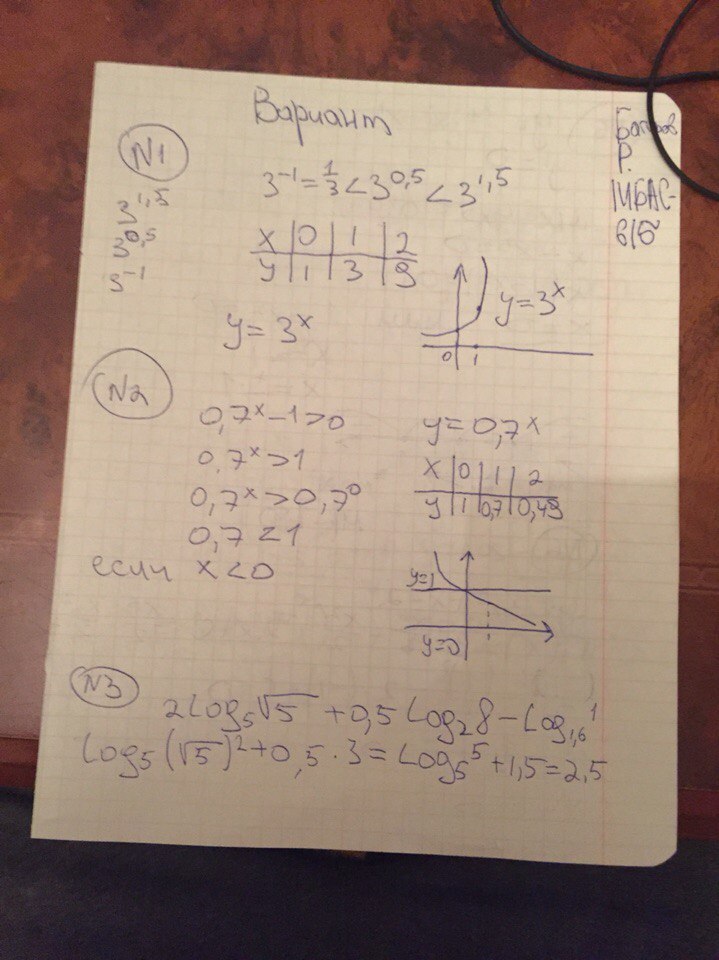 Вариант
Р.
1МБАС-
в/б
N1
3^1,5
3^0,5
3^-1
3^-1 = 1/3 < 3^0,5 < 3^1,5
x | 0 | 1 | 2
y | 1 | 3 | 9
y = 3^x
y = 3^x
0 1
N2
0,7^x - 1 > 0
0,7^x > 1
0,7^x > 0,7^0
0,7 < 1
если x < 0
y = 0,7^x
x | 0 | 1 | 2
y | 1 | 0,7 | 0,49
y=1
y=0
N3
2Log₅√5 + 0,5 Log₂8 - Log₁,₆1
Log₅(√5)² + 0,5 · 3 = Log₅5 + 1,5 = 2,5